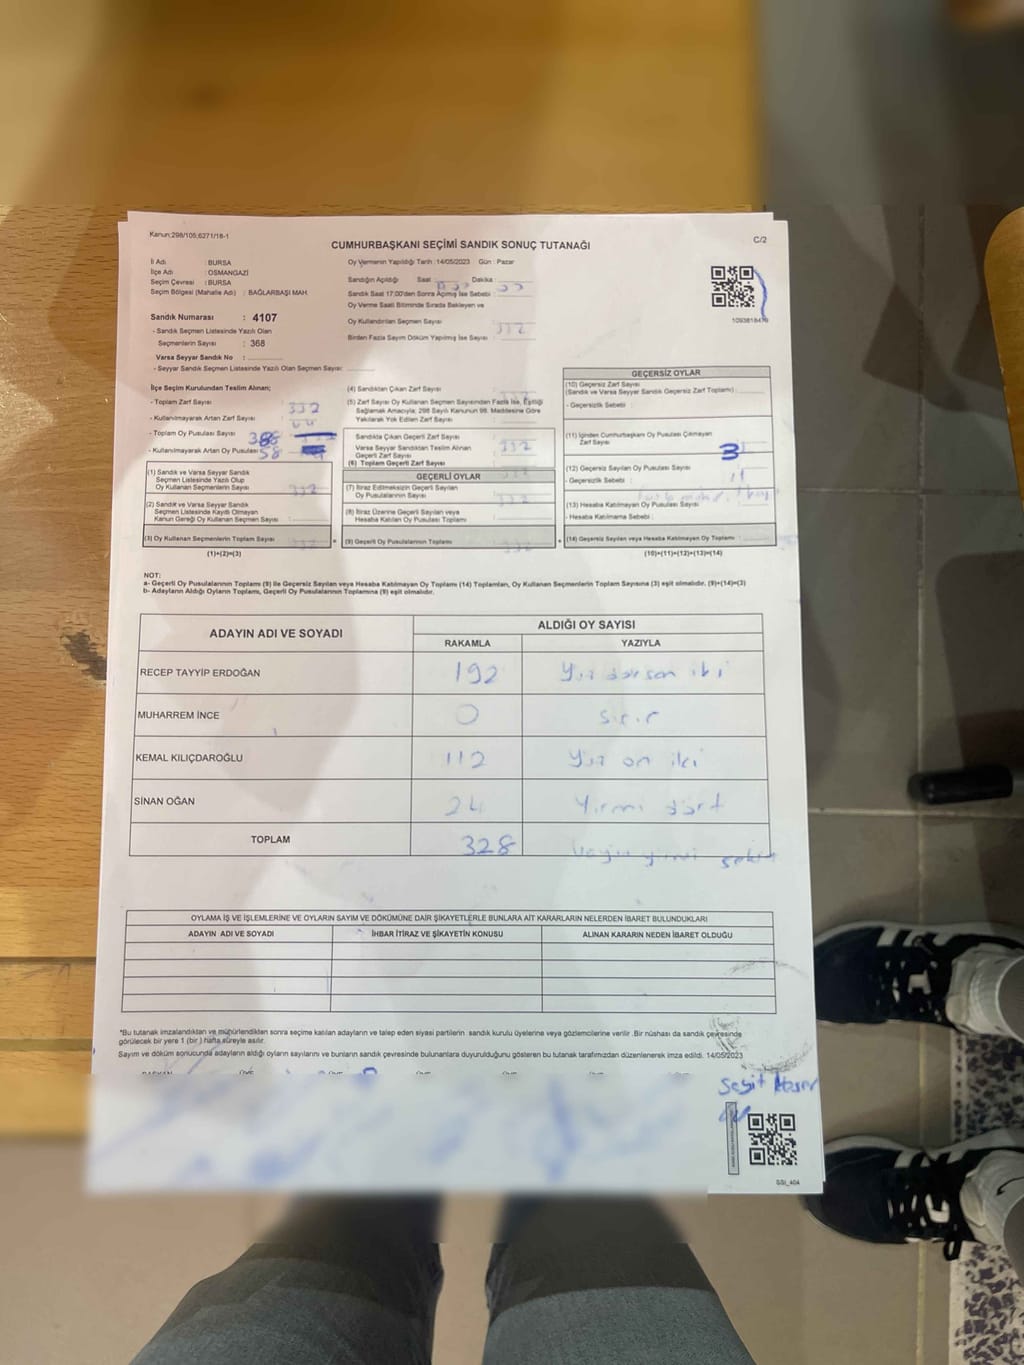 Kanun;298/105;6271/18-1
C/2
CUMHURBAŞKANI SEÇİMİ SANDIK SONUÇ TUTANAĞI
İl Adı : BURSA
İlçe Adı : OSMANGAZİ
Seçim Çevresi : BURSA
Seçim Bölgesi (Mahalle Adı) : BAĞLARBAŞI MAH.
Sandık Numarası : 4107
- Sandık Seçmen Listesinde Yazılı Olan
Seçmenlerin Sayısı : 368
Varsa Seyyar Sandık No :
- Seyyar Sandık Seçmen Listesinde Yazılı Olan Seçmen Sayısı
Oy Vermenin Yapıldığı Tarih :14/05/2023 Gün : Pazar
Sandığın Açıldığı Saat Dakika
Sandık Saat 17.00'den Sonra Açılmış İse Sebebi :
Oy Verme Saati Bitiminde Sırada Bekleyen ve
Oy Kullandırılan Seçmen Sayısı
Birden Fazla Sayım Döküm Yapılmış İse Sayısı : 332
İlçe Seçim Kurulundan Teslim Alınan;
- Toplam Zarf Sayısı
- Kullanılmayarak Artan Zarf Sayısı 332
- Toplam Oy Pusulası Sayısı
- Kullanılmayarak Artan Oy Pusulası Sayısı 58
(1) Sandık ve Varsa Seyyar Sandık
Seçmen Listesinde Yazılı Olup
Oy Kullanan Seçmenlerin Sayısı 332
(2) Sandık ve Varsa Seyyar Sandık
Seçmen Listesinde Kayıtlı Olmayan
Kanun Gereği Oy Kullanan Seçmen Sayısı
(3) Oy Kullanan Seçmenlerin Toplam Sayısı 332
(1)+(2)=(3)
(4) Sandıktan Çıkan Zarf Sayısı
(5) Zarf Sayısı Oy Kullanan Seçmen Sayısından Fazla İse, Eşitliği
Sağlamak Amacıyla; 298 Sayılı Kanunun 98. Maddesine Göre
Yakılarak Yok Edilen Zarf Sayısı
Sandıkta Çıkan Geçerli Zarf Sayısı
Varsa Seyyar Sandıktan Teslim Alınan 332
Geçerli Zarf Sayısı
(6) Toplam Geçerli Zarf Sayısı
GEÇERLİ OYLAR
(7) İtiraz Edilmeksizin Geçerli Sayılan
Oy Pusulalarının Sayısı 332
(8) İtiraz Üzerine Geçerli Sayılan veya
Hesaba Katılan Oy Pusulası Toplamı
(9) Geçerli Oy Pusulalarının Toplamı 332
GEÇERSİZ OYLAR
(10) Geçersiz Zarf Sayısı
(Sandık ve Varsa Seyyar Sandık Geçersiz Zarf Toplamı)
- Geçersizlik Sebebi :
(11) İçinden Cumhurbaşkanı Oy Pusulası Çıkmayan
Zarf Sayısı 3
(12) Geçersiz Sayılan Oy Pusulası Sayısı
- Geçersizlik Sebebi :
(13) Hesaba Katılmayan Oy Pusulası Sayısı
- Hesaba Katılmama Sebebi :
(14) Geçersiz Sayılan veya Hesaba Katılmayan Oy Toplamı
(10)+(11)+(12)+(13)=(14)
NOT:
a- Geçerli Oy Pusulalarının Toplamı (9) ile Geçersiz Sayılan veya Hesaba Katılmayan Oy Toplamı (14) Toplamları, Oy Kullanan Seçmenlerin Toplam Sayısına (3) eşit olmalıdır. (9)+(14)=(3)
b- Adayların Aldığı Oyların Toplamı, Geçerli Oy Pusulalarının Toplamına (9) eşit olmalıdır.
ADAYIN ADI VE SOYADI ALDIĞI OY SAYISI
RAKAMLA YAZIYLA
RECEP TAYYİP ERDOĞAN 192 Yüz doksan iki
MUHARREM İNCE 0 Sıfır
KEMAL KILIÇDAROĞLU 112 Yüz on iki
SİNAN OĞAN 24 Yirmi dört
TOPLAM 328
OYLAMA İŞ VE İŞLEMLERİNE VE OYLARIN SAYIM VE DÖKÜMÜNE DAİR ŞİKAYETLERLE BUNLARA AİT KARARLARIN NELERDEN İBARET BULUNDUKLARI
ADAYIN ADI VE SOYADI İHBAR İTİRAZ VE ŞİKAYETİN KONUSU ALINAN KARARIN NEDEN İBARET OLDUĞU
*Bu tutanak imzalandıktan ve mühürlendikten sonra seçime katılan adayların ve talep eden siyasi partilerin sandık kurulu üyelerine veya gözlemcilerine verilir. Bir nüshası da sandık çevresinde
görülecek bir yere 1 (bir) hafta süreyle asılır.
Sayım ve döküm sonucunda adayların aldığı oyların sayılarını ve bunların sandık çevresinde bulunanlara duyurulduğunu gösteren bu tutanak tarafımızdan düzenlenerek imza edildi. 14/05/2023
SSI_40A